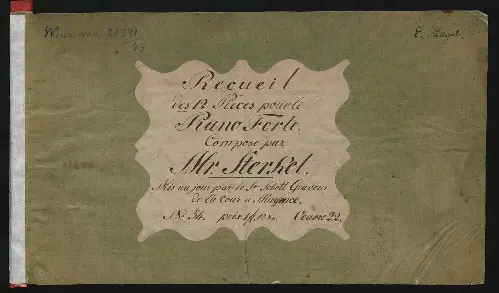 Mus. ms. 21391
/23
Recueil
des 12 Pièces pour le
Piano Forte.
Composé par
Mr. Sterkel.
Mis au jour par le Sr. Schott Graveur
de la Cour a Mayence.
No. 34. prix 1 f. Oeuvre 22.